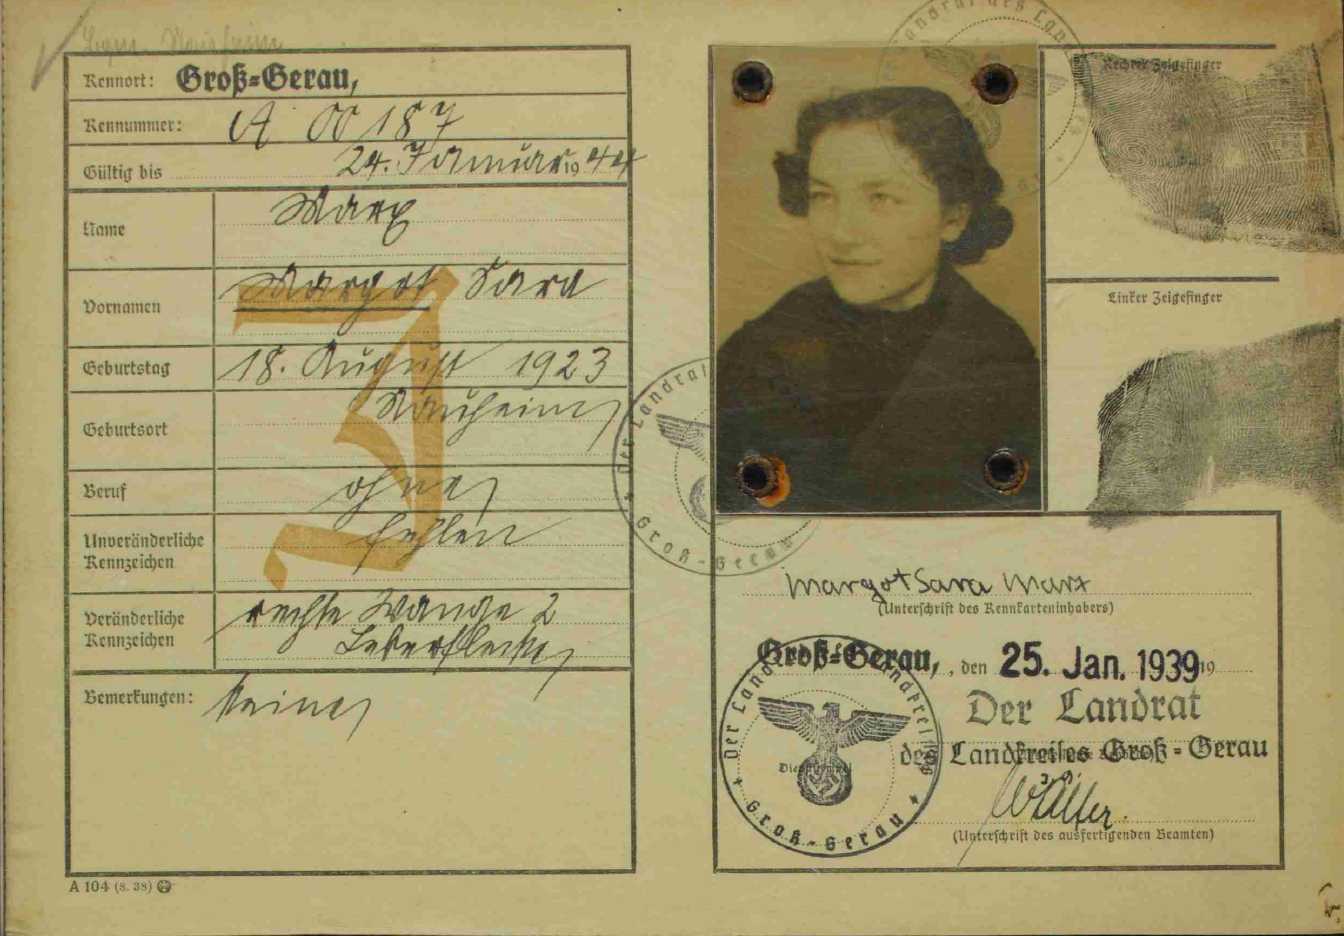 Kennort: Groß-Gerau,
Kennummer: A 00187
Gültig bis 24. Januar 1944
Name Marx
Vornamen Margot Sara
Geburtstag 18. August 1923
Geburtsort Nauheim
Beruf ohne
Unveränderliche Kennzeichen fehlen
Veränderliche Kennzeichen rechte Wange 2
Leberflecke
Bemerkungen: Keine
J
A 104 (8. 38)
Rechter Zeigefinger
Linker Zeigefinger
Der Landrat des Landkreises
Der Landrat
Groß-Gerau
Margot Sara Marx
(Unterschrift des Kennkarteninhabers)
Groß-Gerau, , den 25. Jan. 1939 19
Der Landrat
des Landkreises Groß-Gerau
Der Landrat des Landkreises
Groß-Gerau
(Unterschrift des ausfertigenden Beamten)